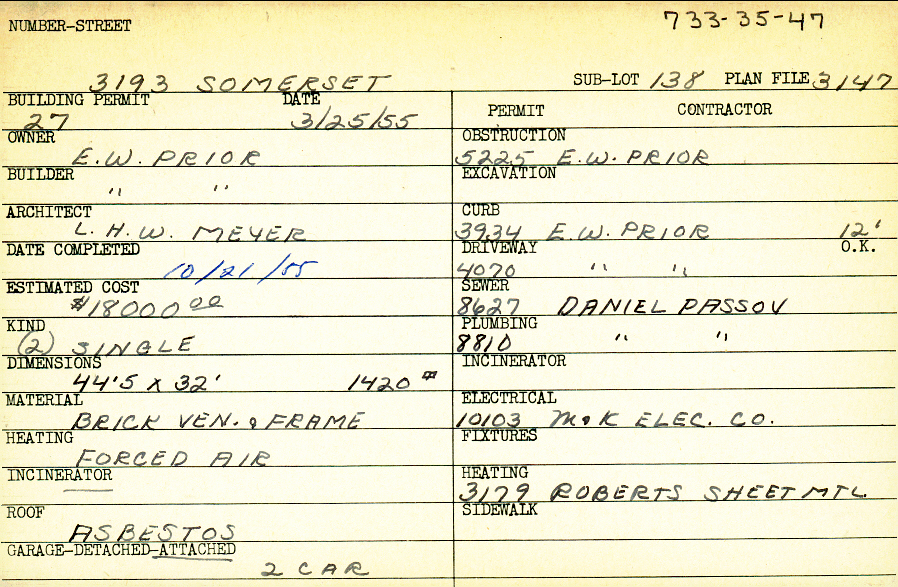 733-35-47
NUMBER-STREET
3193 SOMERSET SUB-LOT 138 PLAN FILE 3147
BUILDING PERMIT DATE
27 3/25/55
OWNER
E.W. PRIOR
BUILDER
" "
ARCHITECT
L. H.W. MEYER
DATE COMPLETED
10/21/55
ESTIMATED COST
$18000 00
KIND
(2) SINGLE
DIMENSIONS
44'5 X 32' 1420 #
MATERIAL
BRICK VEN. & FRAME
HEATING
FORCED AIR
INCINERATOR
ROOF
ASBESTOS
GARAGE-DETACHED-ATTACHED
2 CAR
PERMIT CONTRACTOR
OBSTRUCTION
5225 E.W. PRIOR
EXCAVATION
CURB
3934 E.W. PRIOR 12'
DRIVEWAY O.K.
4070 " "
SEWER
8627 DANIEL PASSOV
PLUMBING
8810 " "
INCINERATOR
ELECTRICAL
10103 M & K ELEC. CO.
FIXTURES
HEATING
3179 ROBERTS SHEET MTL.
SIDEWALK